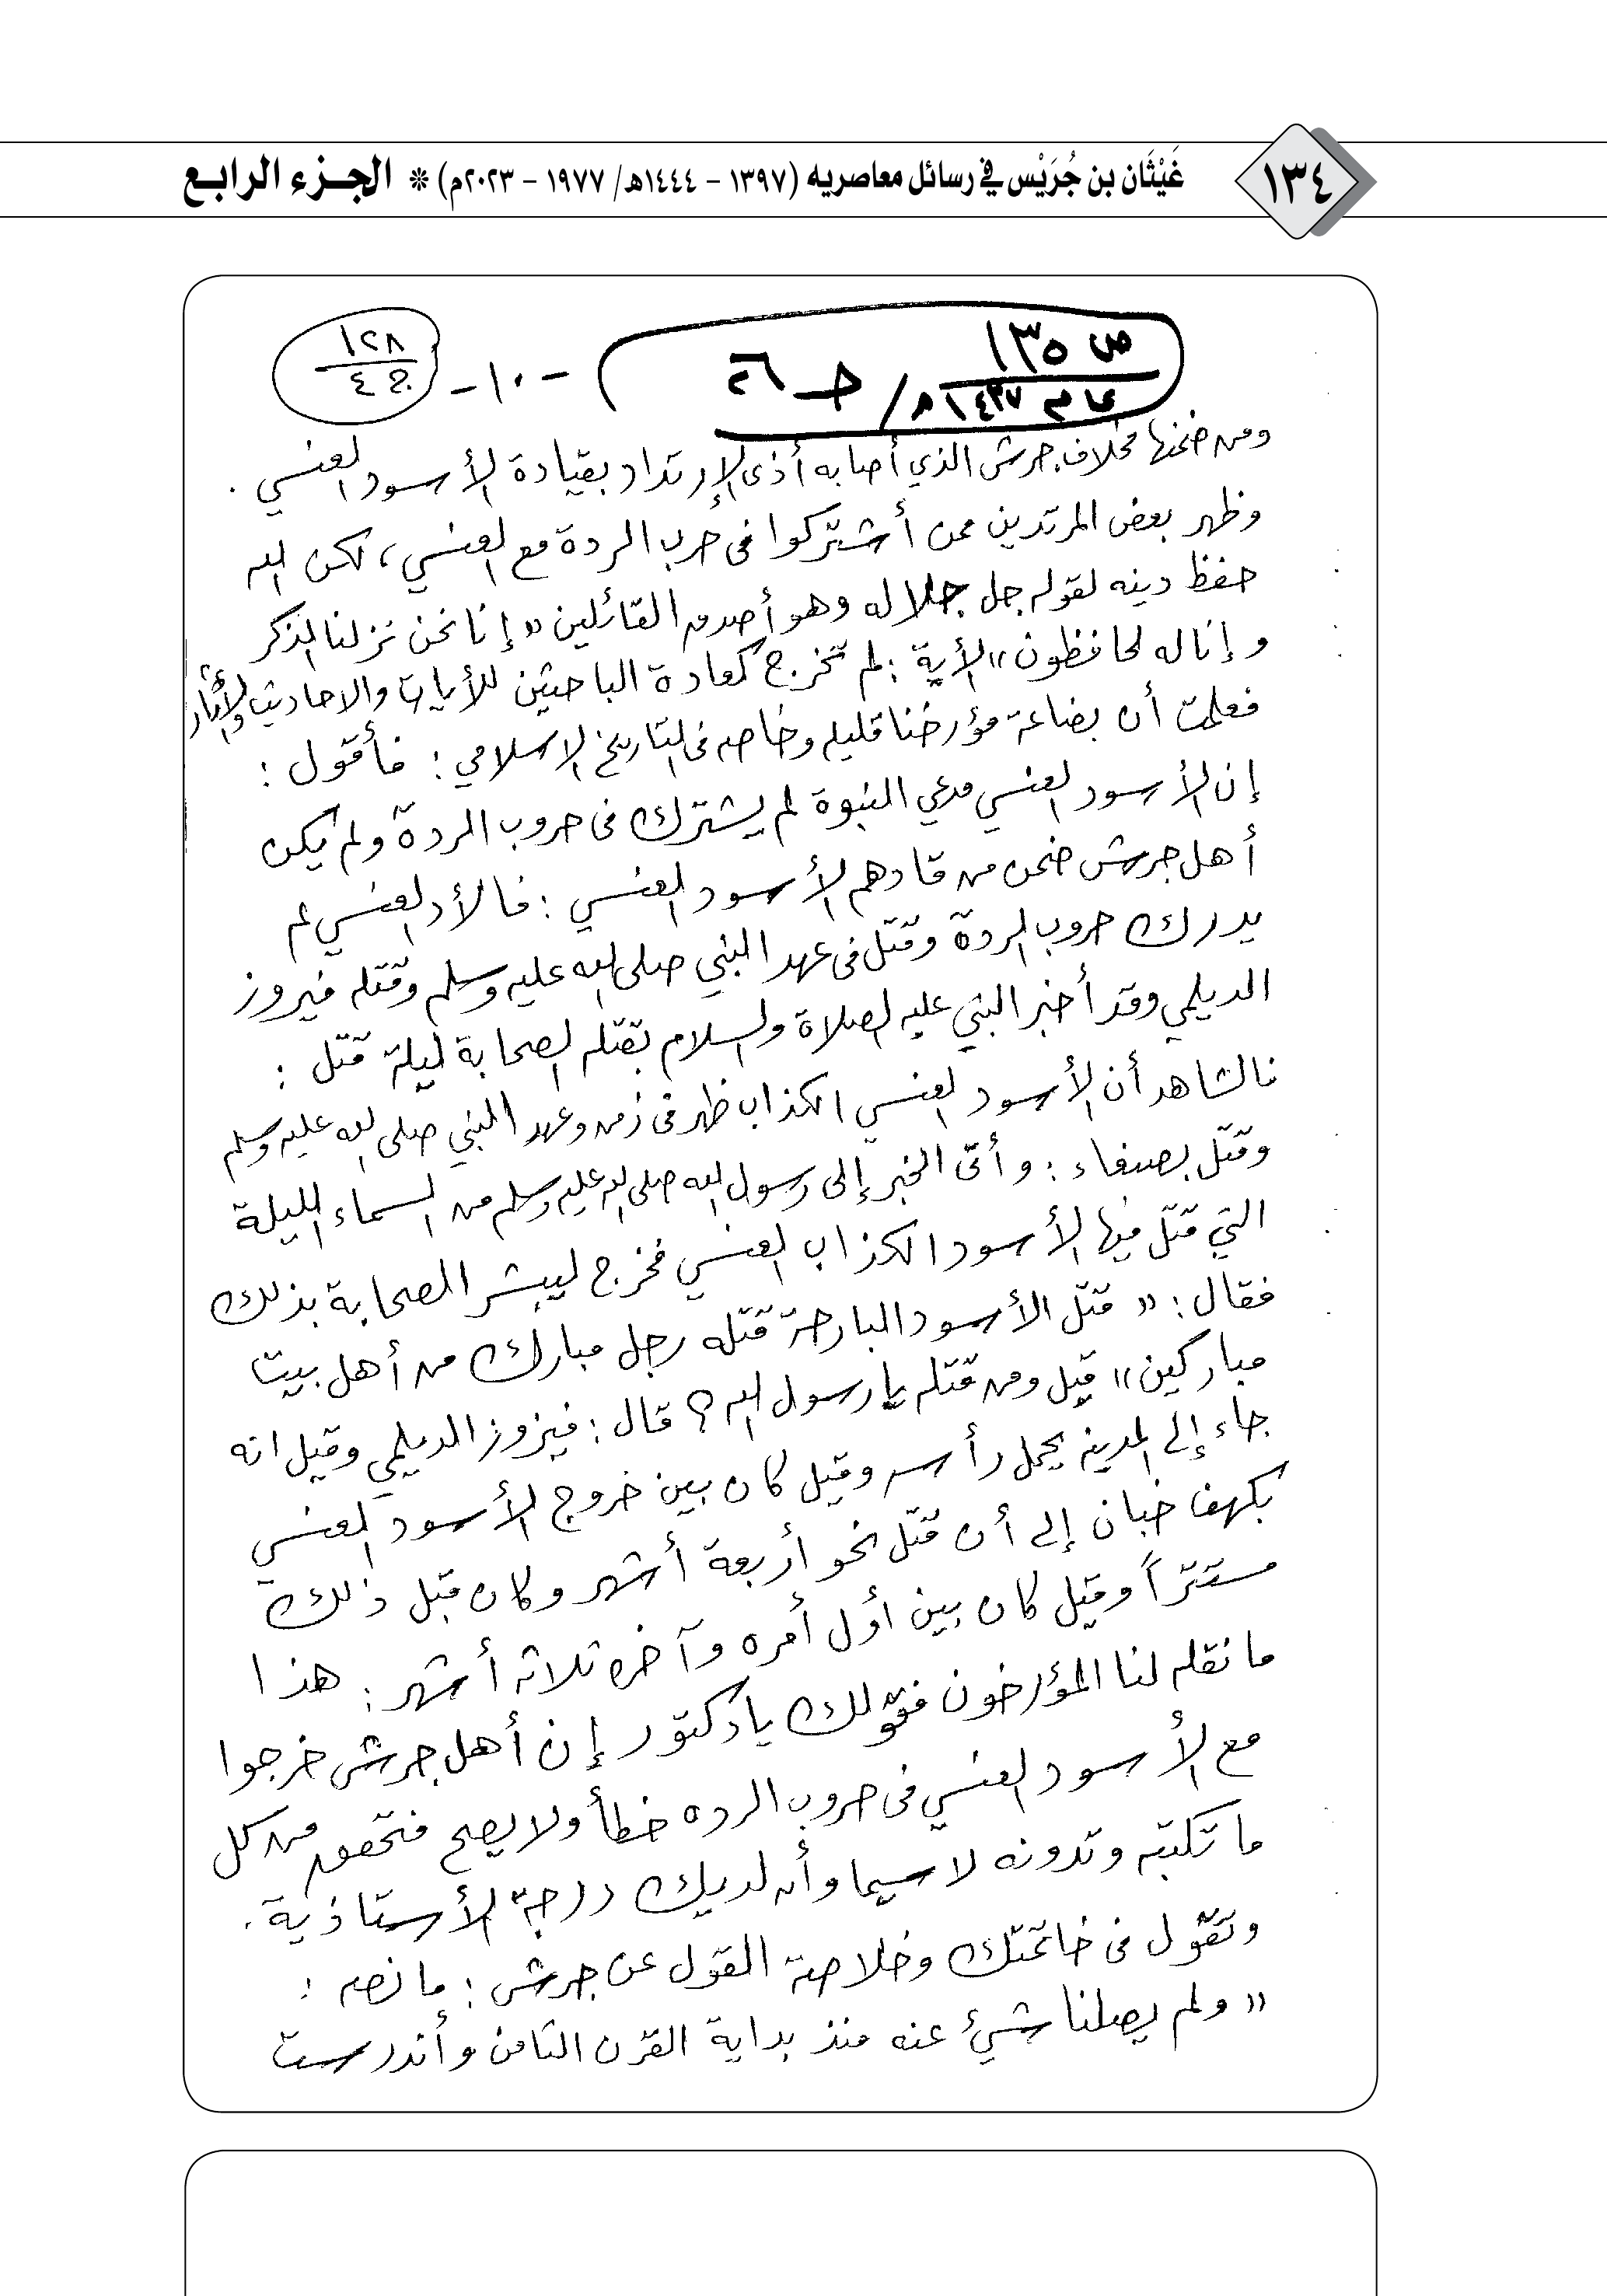 ١٣٤
غَيْثَان بن جُرَيْس في رسائل معاصريه (١٣٩٧ - ١٤٤٤هـ/ ١٩٧٧ - ٢٠٢٣م) * الجــزء الرابــع
ص ١٣٥
عام ١٤٣٧هـ / جـ ٢٦
- ١٠ -
١٢٨
ج ٤
ومن ضمنها مخلاف جرش الذي أصابه أذى الإرتداد بقيادة الأسود العنسي .
وظهر بعض المرتدين ممن أشتركوا في حرب الردة مع العنسي ، لكن الله
حفظ دينه لقوله جل جلاله وهو أصدق القائلين « إنا نحن نزلنا الذكر
وإنا له لحافظون » الأية : لم تخرج كعادة الباحثين للأيات والاحاديث والأثار
فعلمت أن بضاعة مؤرخنا قليله وخاصه في التاريخ الإسلامي : فأقول :
إن الأسود العنسي مدعي النبوة لم يشترك في حروب الردة ولم يكن
أهل جرش ضمن من قادهم الأسود العنسي : فالأد العنسي لم
يدرك حروب الردة وقتل في عهد النبي صلى الله عليه وسلم وقتله فيروز
الديلمي وقد أخبر النبي عليه الصلاة والسلام بقتله الصحابة ليلة قتل :
فالشاهد أن الأسود العنسي الكذاب ظهر في زمن وعهد النبي صلى الله عليه وسلم
وقتل بصنعاء : وأتى الخبر إلى رسول الله صلى الله عليه وسلم من السماء الليلة
التي قتل فيها الأسود الكذاب العنسي فخرج ليبشر الصحابة بذلك
فقال : « قتل الأسود البارحة قتله رجل مبارك من أهل بيت
مباركين » قيل ومن قتله يا رسول الله ؟ قال : فيروز الديلمي وقيل انه
جاء إلى المدينه يحمل رأسه وقيل كان بين خروج الأسود العنسي
بكهف خبان إلى أن قتل نحو أربعة أشهر وكان قبل ذلك
مستتراً وقيل كان بين أول أمره وآخره ثلاثه أشهر : هذا
ما نقله لنا المؤرخون فقولك يا دكتور إن أهل جرش خرجوا
مع الأسود العنسي في حروب الرده خطأ ولا يصح فتحقق من كل
ما تكتبه وتدونه لاسيما وأن لديك درجة الأستاذية .
وتقول في خاتمتك وخلاصة القول عن جرش : ما نصه :
« ولم يصلنا شيئ عنه منذ بداية القرن الثامن وأندرست